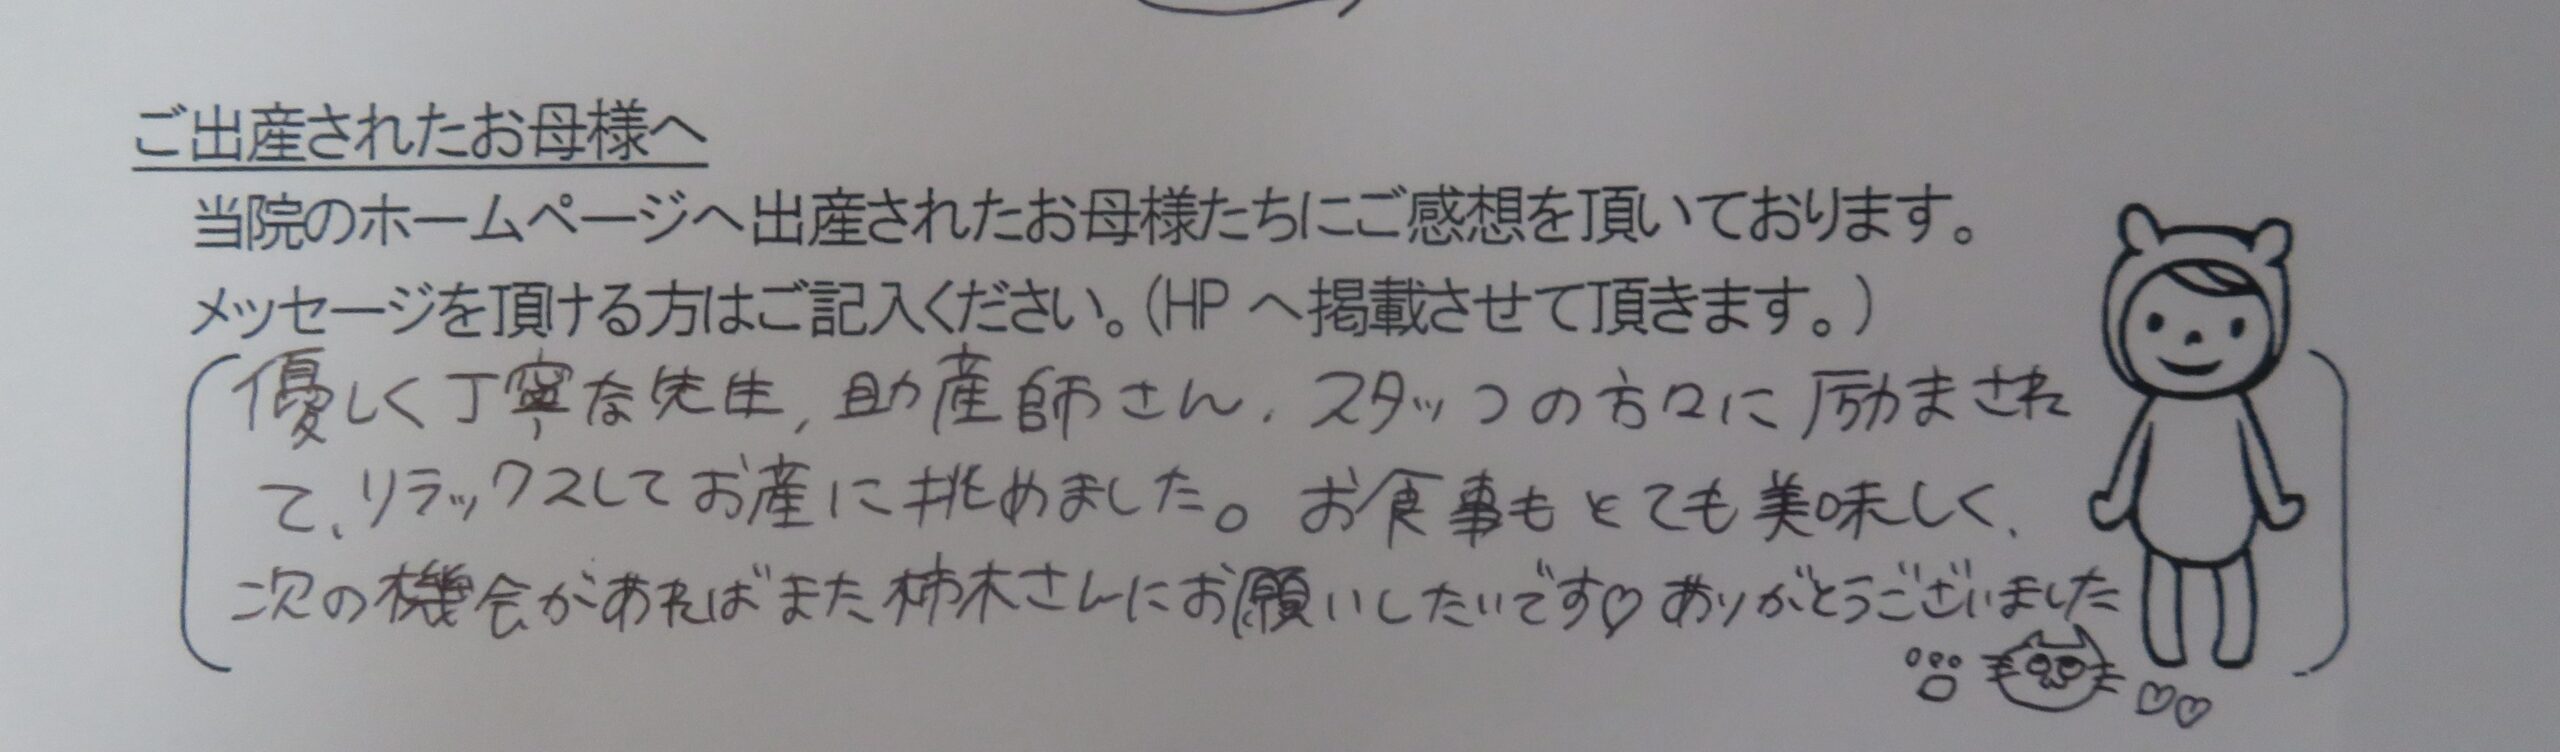 ご出産されたお母様へ
当院のホームページへ出産されたお母様たちにご感想を頂いております。
メッセージを頂ける方はご記入ください。（HPへ掲載させて頂きます。）
優しく丁寧な先生、助産師さん、スタッフの方々に励まされ
て、リラックスしてお産に挑めました。お食事もとても美味しく、
次の機会があればまた柿木さんにお願いしたいです♡ありがとうございました